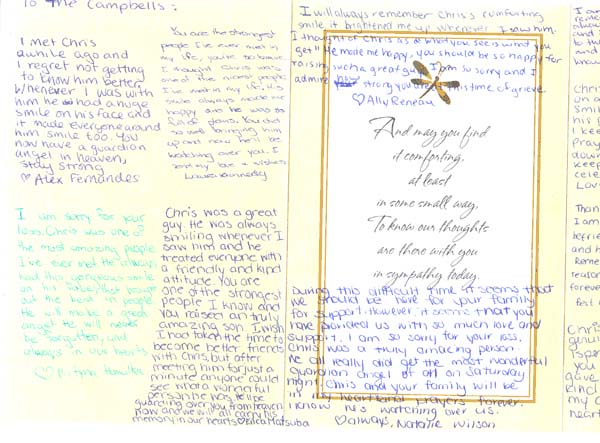 To The Campbells:
I Met Chris
awhile ago and
I regret not getting
to know him better.
Whenever I was with
him he had a huge
smile on his face and
it made everyone around
him smile too. You
now have a guardian
angel in heaven,
stay strong
♡ Alex Fernandes
You are the strongest
people I've ever met in
my life, you're so brave
I thought Chris was
one of the nicest people
I've met in my life. His
smile always made me
happy and he was so
full of joy. You did
so well bringing him
up and now he'll be
watching over you. I
send my love & wishes
I will always remember Chris's comforting
smile it brightened me up whenever I saw him.
I thought of Chris as a "what you see is what you
get" He made me happy, you should be so happy for
raising such a great guy. I am so sorry and I
admire how strong you are at this time of grieve.
♡ Ally Reneau
And may you find
it comforting,
at least
in some small way,
To know our thoughts
are there with you
in sympathy today.
I am sorry for your
loss. Chris was one of
the most amazing people
I've ever met. He always
had this gorgeous smile
on his face that brought
out the best in people
He will make a great
angel. He will never
be forgotten, and
always in our hearts
Chris was a great
guy. He was always
smiling whenever I
saw him and he
treated everyone with
a friendly and kind
attitude. You are
one of the strongest
people I know and
you raised an truly
amazing son. I wish
I had taken the time to
become better friends
with Chris, but after
meeting him for just a
minute anyone could
see what a wonderful
person he was. He'll be
guarding over you from heaven
now and we will all carry his
memory in our hearts ♡ Erica Matsuba
During this difficult time it seems that
we should be here for your family
for support. However, it seems that you
have provided us with so much love and
support. I am so sorry for your loss.
Chris was a truly amazing person.
We all really did get the most wonderful
guardian angel of all on Saturday
night. Chris and your family will be
in my heart and prayers forever.
I know he's watching over us.
♡ always, Natalie Wilson